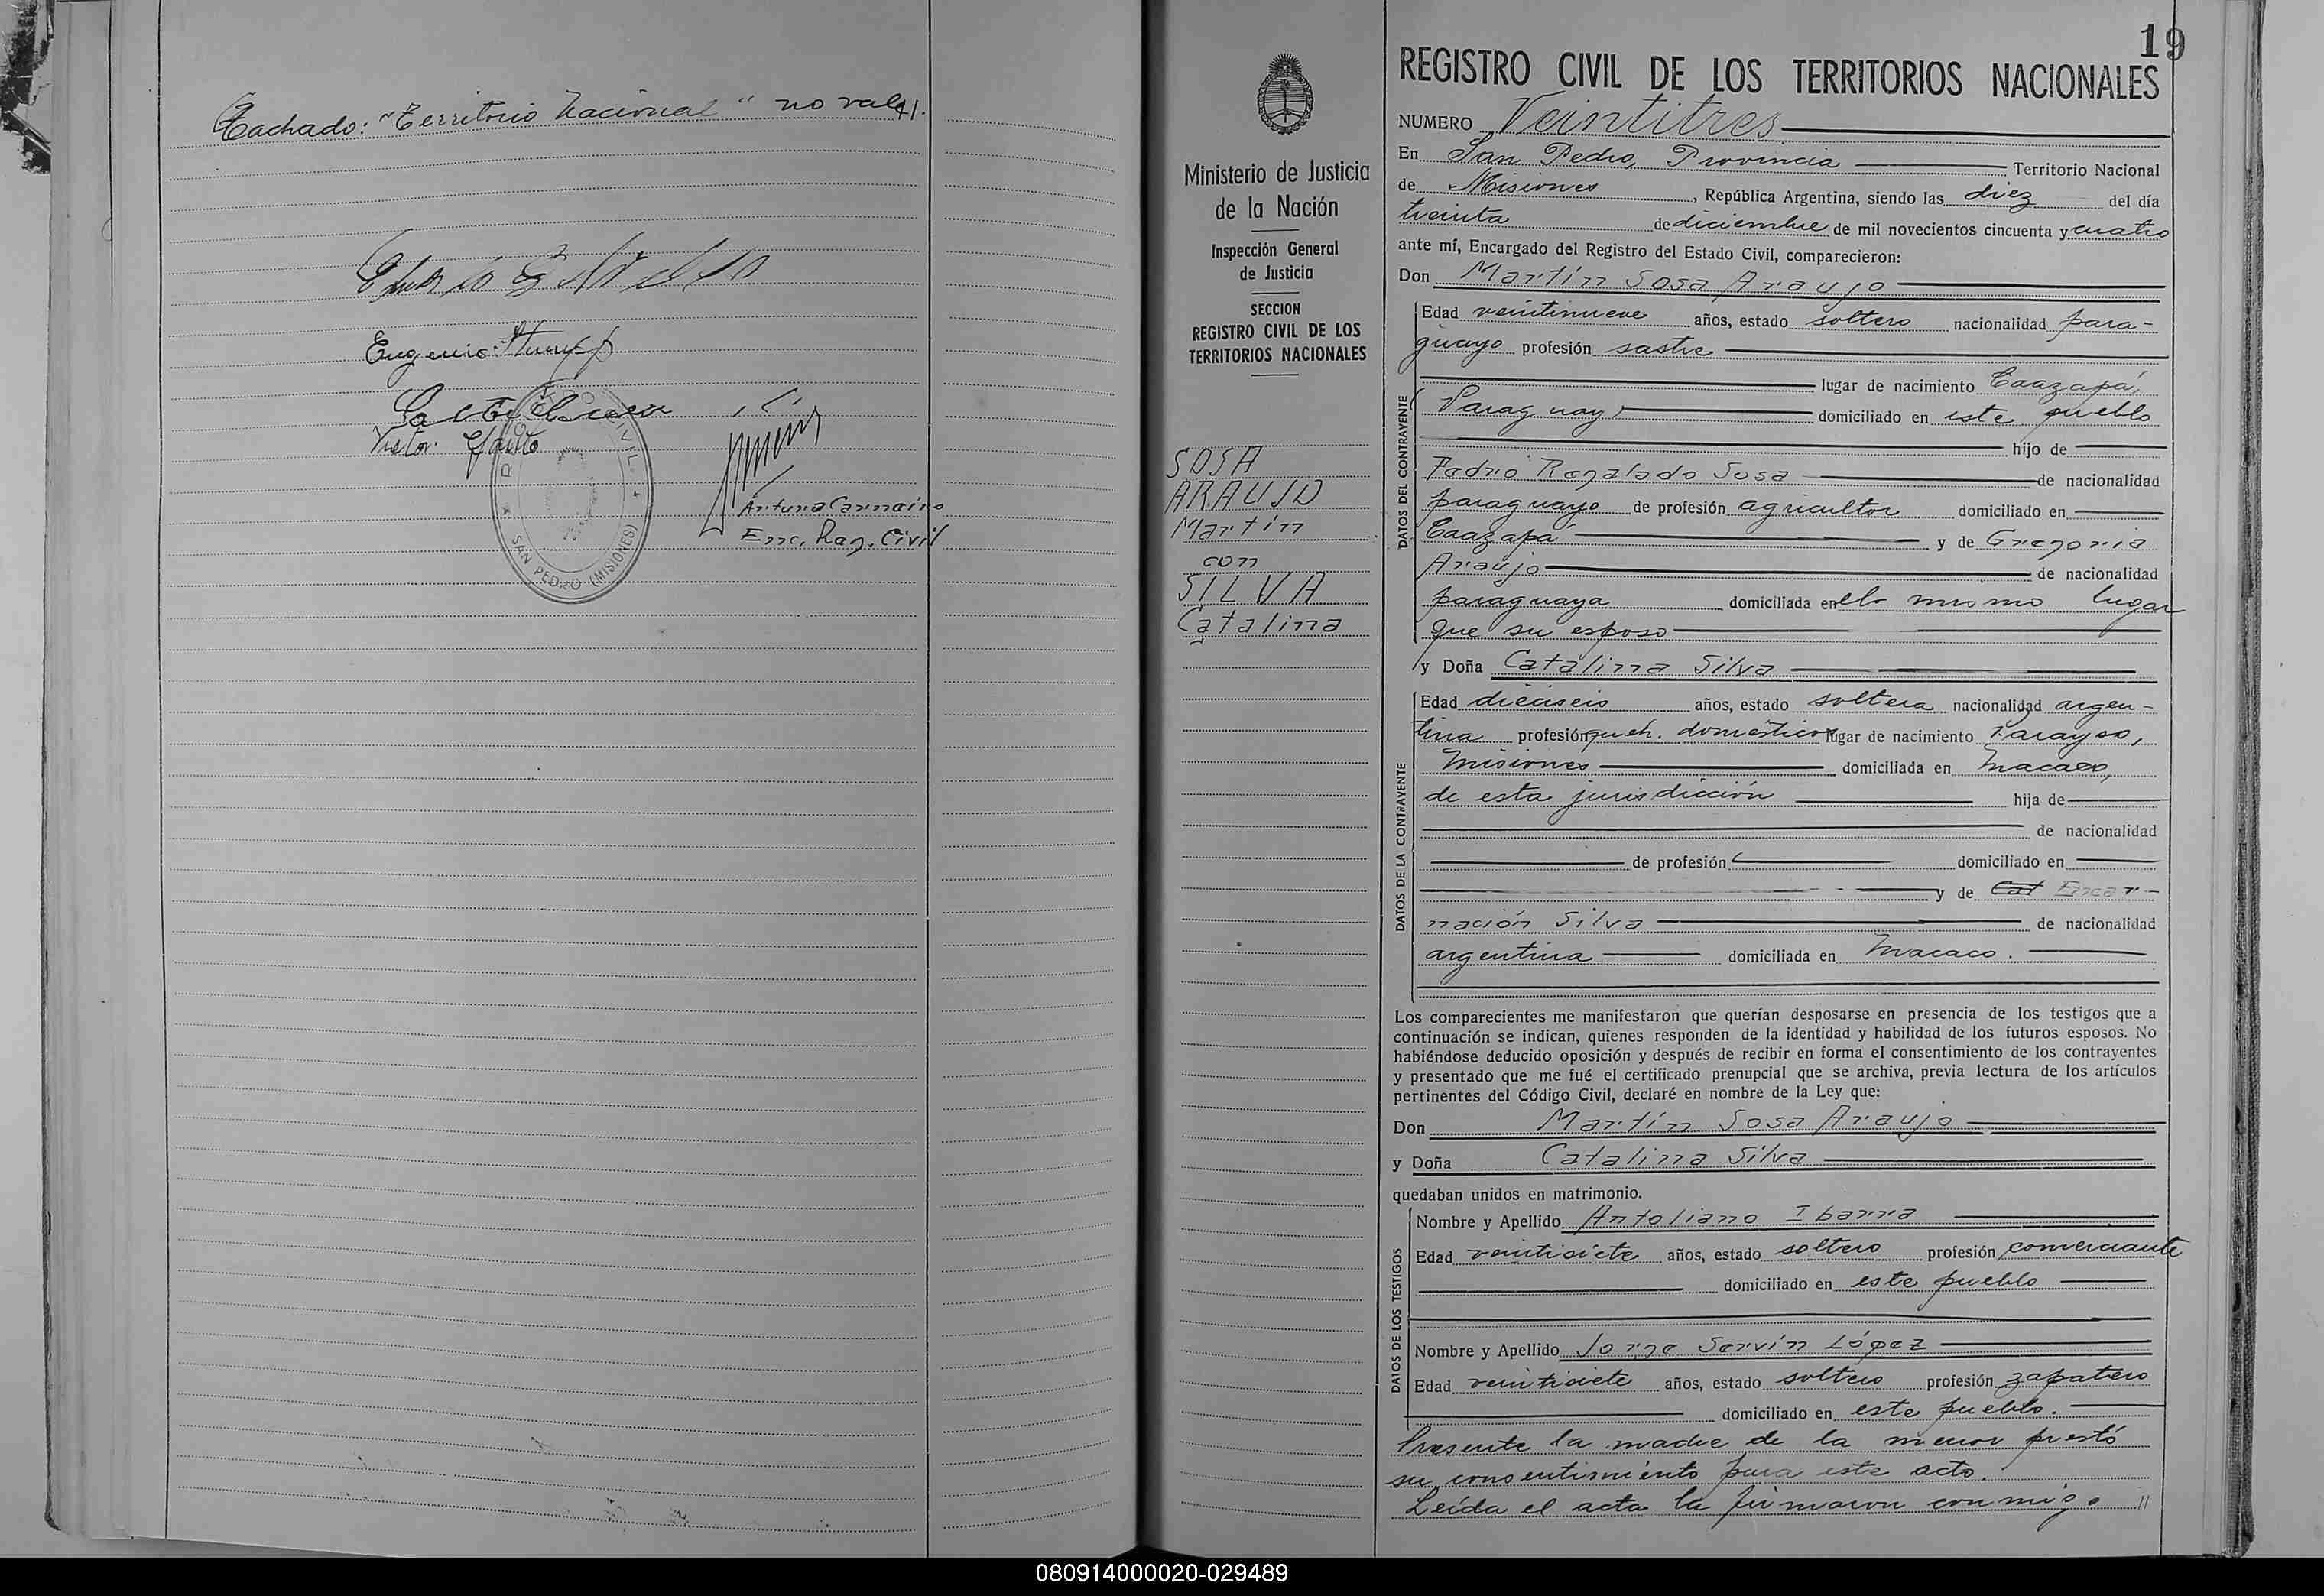 Tachado: "Territorio Nacional" no vale.
Eugenio
Victor
REGISTRO CIVIL
SAN PEDRO (MISIONES)
Arturo
Enc. Reg. Civil
Ministerio de Justicia
de la Nación
Inspección General
de Justicia
SECCION
REGISTRO CIVIL DE LOS
TERRITORIOS NACIONALES
SOSA
ARAUJO
Martín
con
SILVA
Catalina
19
REGISTRO CIVIL DE LOS TERRITORIOS NACIONALES
NUMERO Veintitres
En San Pedro, Provincia Territorio Nacional
de Misiones, República Argentina, siendo las diez del día
treinta de diciembre de mil novecientos cincuenta y cuatro
ante mí, Encargado del Registro del Estado Civil, comparecieron:
Don Martín Sosa Araujo
DATOS DEL CONTRAYENTE
Edad veintinueve años, estado soltero nacionalidad para-
guayo profesión sastre
lugar de nacimiento Caazapá,
Paraguay domiciliado en este pueblo
hijo de
Pedro Regalado Sosa de nacionalidad
paraguayo de profesión agricultor domiciliado en
Caazapá y de Gregoria
Araujo de nacionalidad
paraguaya domiciliada en el mismo lugar
que su esposo
y Doña Catalina Silva
DATOS DE LA CONTRAYENTE
Edad dieciseis años, estado soltera nacionalidad argen-
tina profesión queh. domésticos lugar de nacimiento Parayso,
Misiones domiciliada en Macaco,
de esta jurisdicción hija de
de nacionalidad
de profesión domiciliado en
y de Cat Encar-
nación Silva de nacionalidad
argentina domiciliada en Macaco.
Los comparecientes me manifestaron que querían desposarse en presencia de los testigos que a
continuación se indican, quienes responden de la identidad y habilidad de los futuros esposos. No
habiéndose deducido oposición y después de recibir en forma el consentimiento de los contrayentes
y presentado que me fué el certificado prenupcial que se archiva, previa lectura de los artículos
pertinentes del Código Civil, declaré en nombre de la Ley que:
Don Martín Sosa Araujo
y Doña Catalina Silva
quedaban unidos en matrimonio.
DATOS DE LOS TESTIGOS
Nombre y Apellido Antoliano Ibarra
Edad veintisiete años, estado soltero profesión comerciante
domiciliado en este pueblo
Nombre y Apellido Jorge Servín López
Edad veintisiete años, estado soltero profesión zapatero
domiciliado en este pueblo.
Presente la madre de la menor prestó
su consentimiento para este acto.
Leída el acta la firmaron conmigo //
080914000020-029489